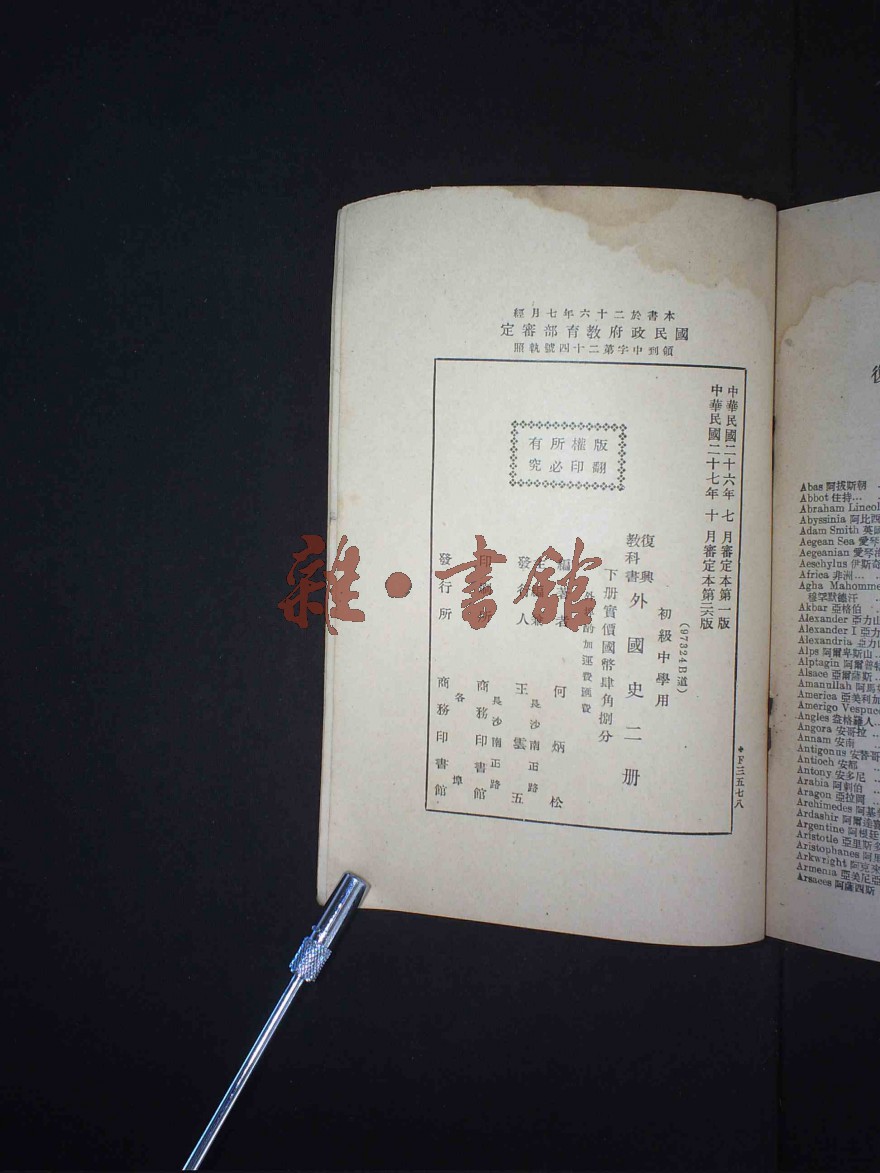 本書於二十六年七月經
國民政府教育部審定
領到中字第二十四號執照
中華民國二十六年七月審定本第一版
中華民國二十七年十月審定本第二六版
◆F三五七八
(97324B道)
初級中學用
復興教科書
外國史二册
下册實價國幣肆角捌分
外埠酌加運費匯費
版權所有
翻印必究
編著者 何炳松
發行人 王雲五
長沙南正路
印刷所 商務印書館
發行所 商務印書館
各埠
雜·書館
Abas 阿拔斯朝
Abbot 住持...
Abraham Lincol
Abyssinia 阿比西
Adam Smith 英
Aegean Sea 愛琴
Aegeanian 愛琴
Aeschylus 伊斯奇
Africa 非洲...
Agha Mahomme
穆罕默德汗
Akbar 亞格伯
Alexander 亞力山
Alexander I 亞力
Alexandria 亞力山
Alps 阿爾卑斯山
Alptagin 阿爾普
Alsace 亞爾薩斯
Amanullah 阿馬
America 亞美利加
Amerigo Vespucc
Angles 盎格羅人
Angora 安哥拉
Annam 安南
Antigonus 安替哥
Antioch 安都
Antony 安多尼
Arabia 阿剌伯
Aragon 亞拉岡
Archimedes 阿基
Ardashir 阿爾達
Argentine 阿根廷
Aristotle 亞里斯多
Aristophanes 阿里
Arkwright 阿克來
Armenia 亞美尼亞
Arsaces 阿薩西斯